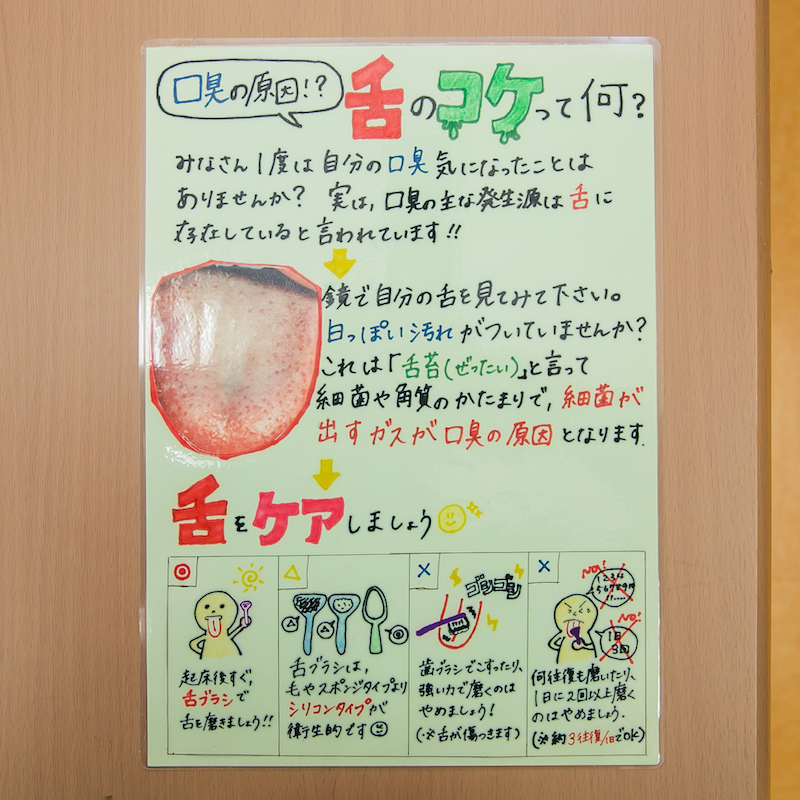 口臭の原因!?
舌のコケって何?
みなさん1度は自分の口臭気になったことは
ありませんか? 実は,口臭の主な発生源は舌に
存在していると言われています!!
鏡で自分の舌を見てみて下さい。
白っぽい汚れがついていませんか?
これは「舌苔(ぜったい)」と言って
細菌や角質のかたまりで,細菌が
出すガスが口臭の原因となります.
舌をケアしましょう
起床後すぐ,
舌ブラシで
舌を磨きましょう!!
舌ブラシは,
毛やスポンジタイプより
シリコンタイプが
衛生的です
ゴシゴシ
歯ブラシでこすったり,
強い力で磨くのは
やめましょう!
(※舌が傷つきます)
NO!
1234
NO!
1日
3回
何往復も磨いたり,
1日に2回以上磨く
のはやめましょう.
(※約3往復/1日でOK)